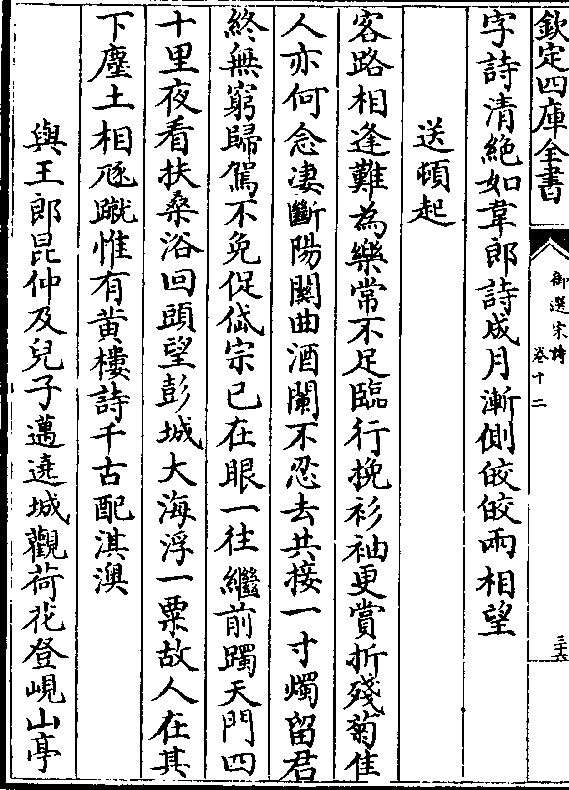 欽定四庫全書
御選宋詩
卷十二
三六
字詩清絶如韋郎詩成月漸側皎皎兩相望
送頓起
客路相逢難為樂常不足臨行挽衫袖更賞折殘菊佳
人亦何念凄斷陽關曲酒闌不忍去共接一寸燭留君
終無窮歸駕不免促岱宗已在眼一往繼前躅天門四
十里夜看扶桑浴回頭望彭城大海浮一粟故人在其
下塵土相豗蹴惟有黄樓詩千古配淇澳
與王郎昆仲及兒子邁遶城觀荷花登峴山亭